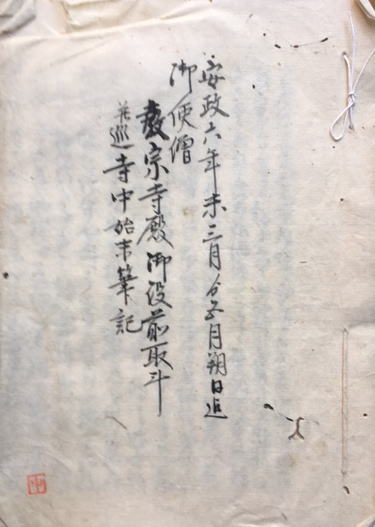 安政六年未三月ゟ五月朔日迠
御使僧
教宗寺殿御役前取斗
并巡寺中始末筆記